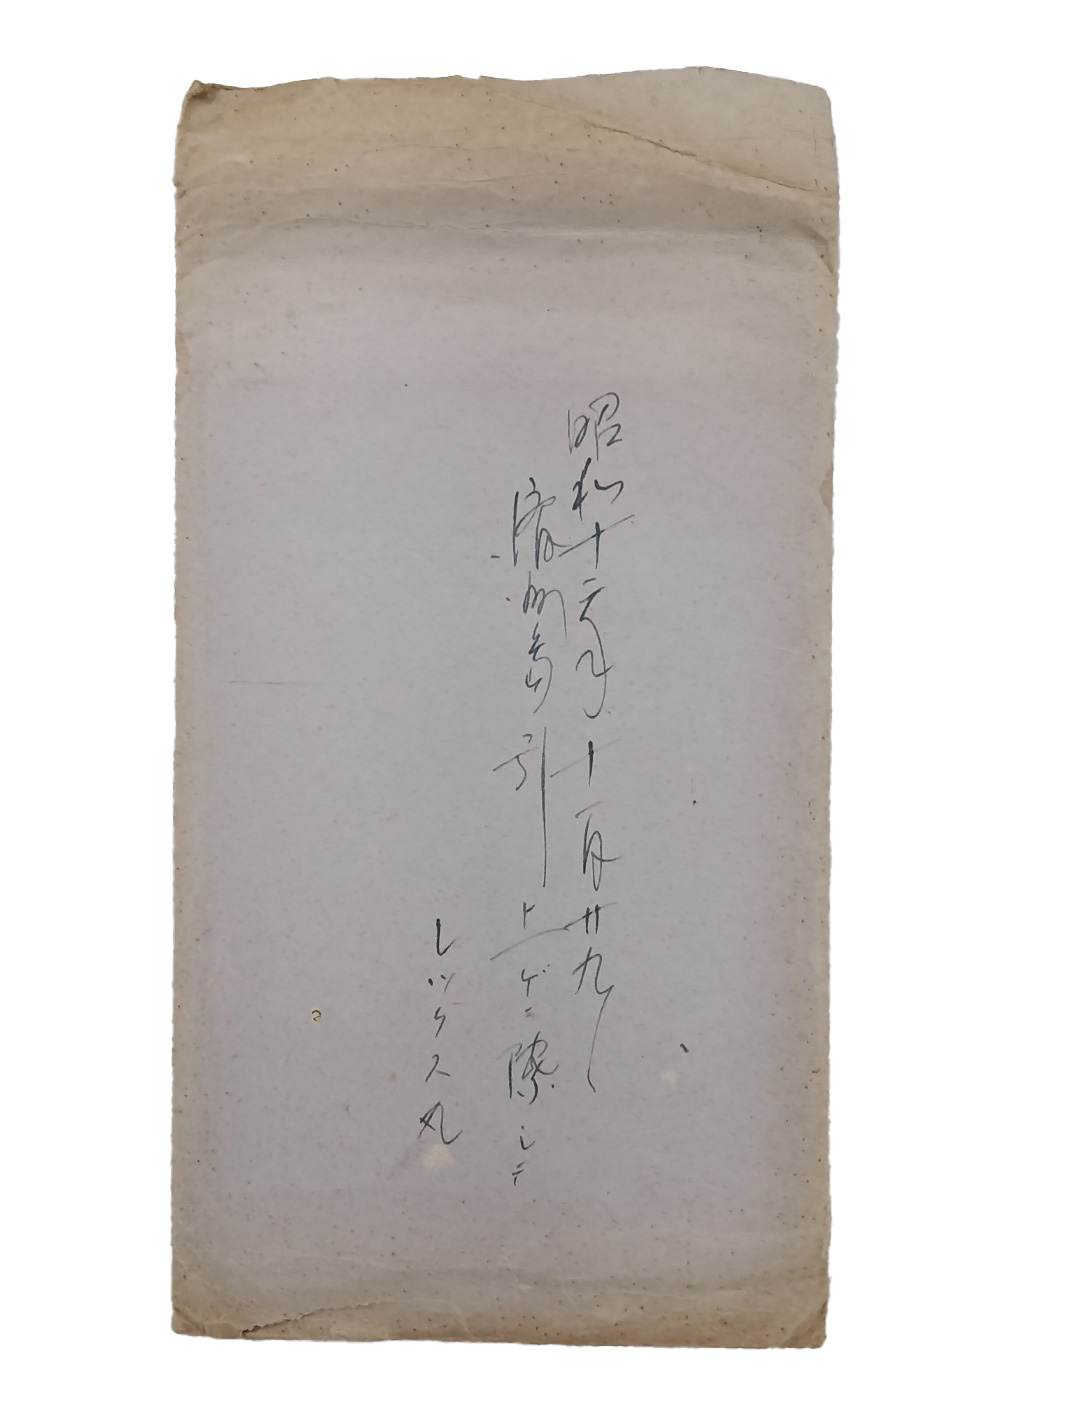 昭和十六年十一月廿九日
済州島引上ゲニ際シテ
レツクス丸